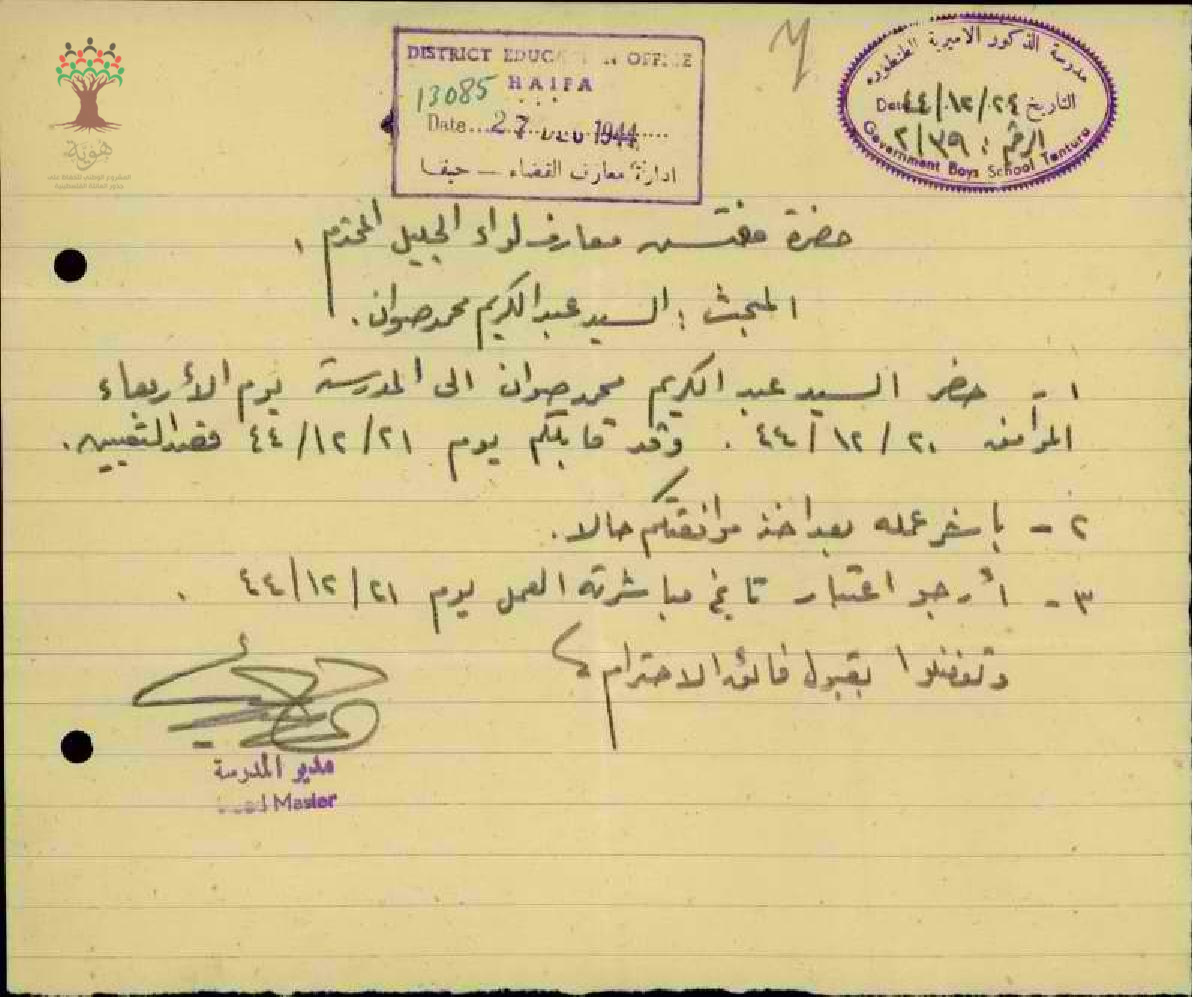 هوية
المشروع الوطني للحفاظ على
جذور العائلة الفلسطينية
DISTRICT EDUCATION OFFICE
HAIFA
13085
Date... 27 DEC 1944
ادارة معارف القضاء — حيفا
مدرسة الذكور الاميرية الطنطوره
التاريخ ٤٤/١٢/٢٤ Date
الرقم : ٢/٣٩
Government Boys School Tantura
حضرة مفتش معارف لواء الجليل المحترم ،
المبحث : السيد عبد الكريم محمد صوان .
١ - حضر السيد عبد الكريم محمد صوان الى المدرسة يوم الأربعاء
الموافق ٤٤/١٢/٢٠ . وقد قابلكم يوم ٤٤/١٢/٢١ قصد التعيين .
٢ - باشر عمله بعد اخذ موافقتكم حالا .
٣ - أرجو اعتبار تاريخ مباشرته العمل يوم ٤٤/١٢/٢١ .
وتفضلوا بقبول فائق الاحترام
مدير المدرسة
Head Master